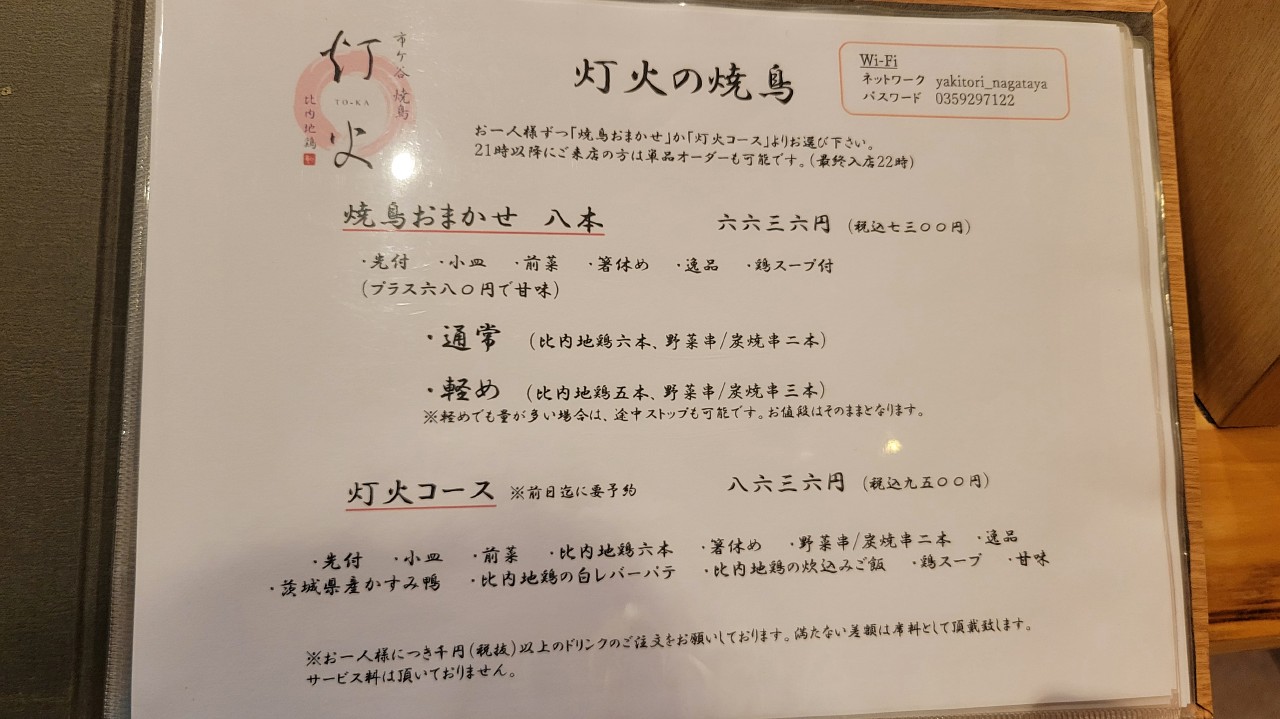 灯火
TO-KA
市ケ谷 焼鳥
比内地鶏
灯火の焼鳥
Wi-Fi
ネットワーク yakitori_nagataya
パスワード 0359297122
お一人様ずつ「焼鳥おまかせ」か「灯火コース」よりお選び下さい。
21時以降にご来店の方は単品オーダーも可能です。(最終入店22時)
焼鳥おまかせ 八本 六六三六円 (税込七三〇〇円)
・先付 ・小皿 ・前菜 ・箸休め ・逸品 ・鶏スープ付
(プラス六八〇円で甘味)
・通常 (比内地鶏六本、野菜串/炭焼串二本)
・軽め (比内地鶏五本、野菜串/炭焼串三本)
※軽めでも量が多い場合は、途中ストップも可能です。お値段はそのままとなります。
灯火コース ※前日迄に要予約 八六三六円 (税込九五〇〇円)
・先付 ・小皿 ・前菜 ・比内地鶏六本 ・箸休め ・野菜串/炭焼串二本 ・逸品
・茨城県産かすみ鴨 ・比内地鶏の白レバーパテ ・比内地鶏の炊込みご飯 ・鶏スープ ・甘味
※お一人様につき千円(税抜)以上のドリンクのご注文をお願いしております。満たない差額は席料として頂戴致します。
サービス料は頂いておりません。